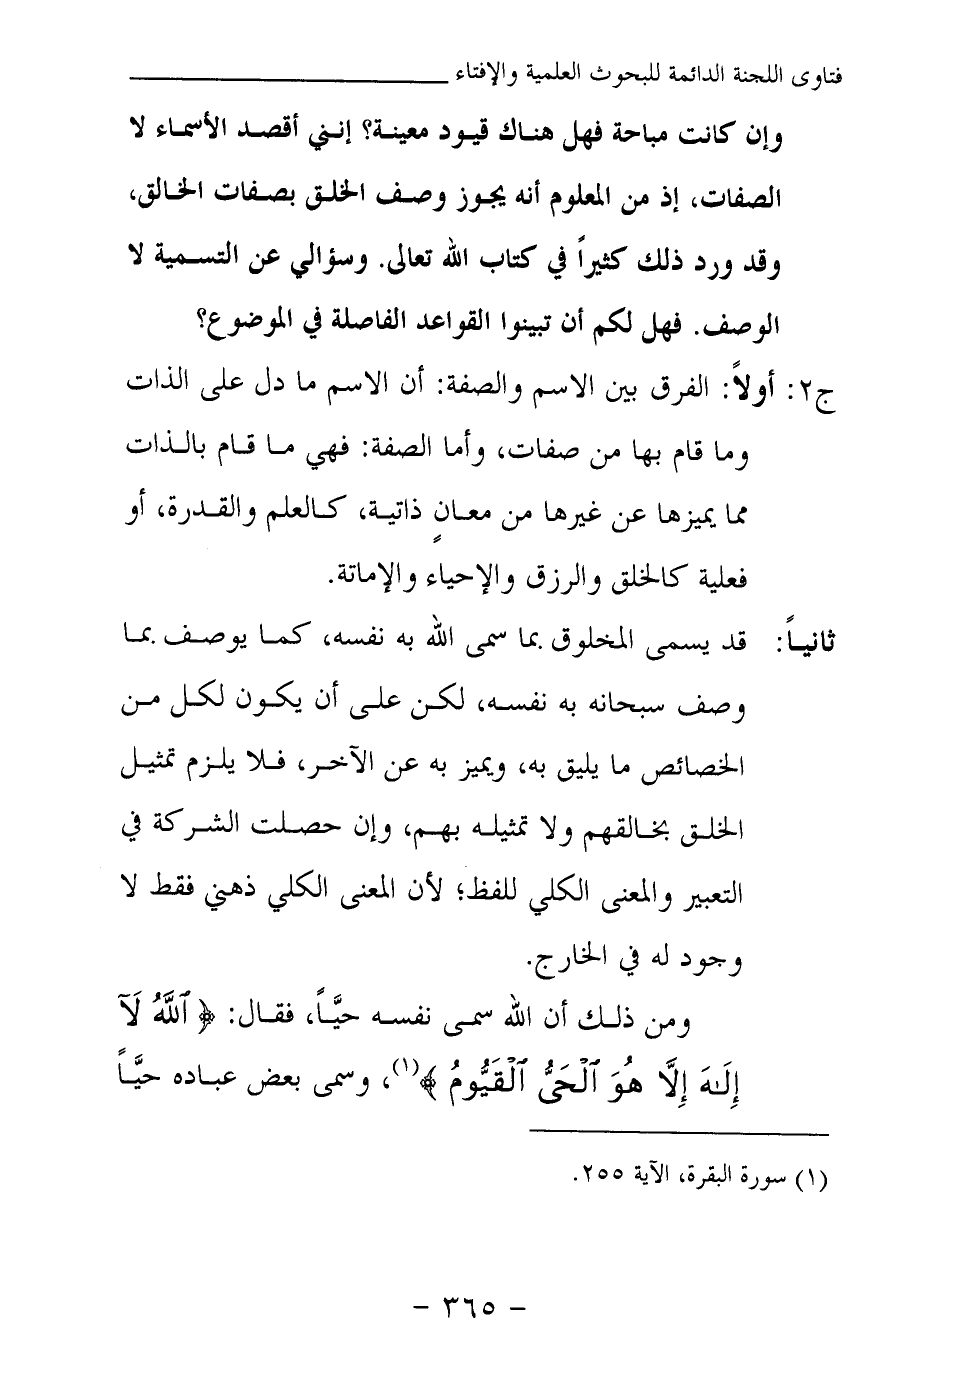 فتاوى اللجنة الدائمة للبحوث العلمية والإفتاء
وإن كانت مباحة فهل هناك قيود معينة؟ إنني أقصد الأسماء لا
الصفات، إذ من المعلوم أنه يجوز وصف الخلق بصفات الخالق،
وقد ورد ذلك كثيراً في كتاب الله تعالى. وسؤالي عن التسمية لا
الوصف. فهل لكم أن تبينوا القواعد الفاصلة في الموضوع؟
ج٢: أولاً: الفرق بين الاسم والصفة: أن الاسم ما دل على الذات
وما قام بها من صفات، وأما الصفة: فهي ما قام بالذات
مما يميزها عن غيرها من معانٍ ذاتية، كالعلم والقدرة، أو
فعلية كالخلق والرزق والإحياء والإماتة.
ثانياً: قد يسمى المخلوق بما سمى الله به نفسه، كما يوصف بما
وصف سبحانه به نفسه، لكن على أن يكون لكل من
الخصائص ما يليق به، ويميز به عن الآخر، فلا يلزم تمثيل
الخلق بخالقهم ولا تمثيله بهم، وإن حصلت الشركة في
التعبير والمعنى الكلي للفظ؛ لأن المعنى الكلي ذهني فقط لا
وجود له في الخارج.
ومن ذلك أن الله سمى نفسه حيَّاً، فقال: ﴿ ٱللَّهُ لَآ
إِلَـٰهَ إِلَّا هُوَ ٱلْحَىُّ ٱلْقَيُّومُ ﴾(١)، وسمى بعض عباده حيَّاً
(١) سورة البقرة، الآية ٢٥٥.
- ٣٦٥ -